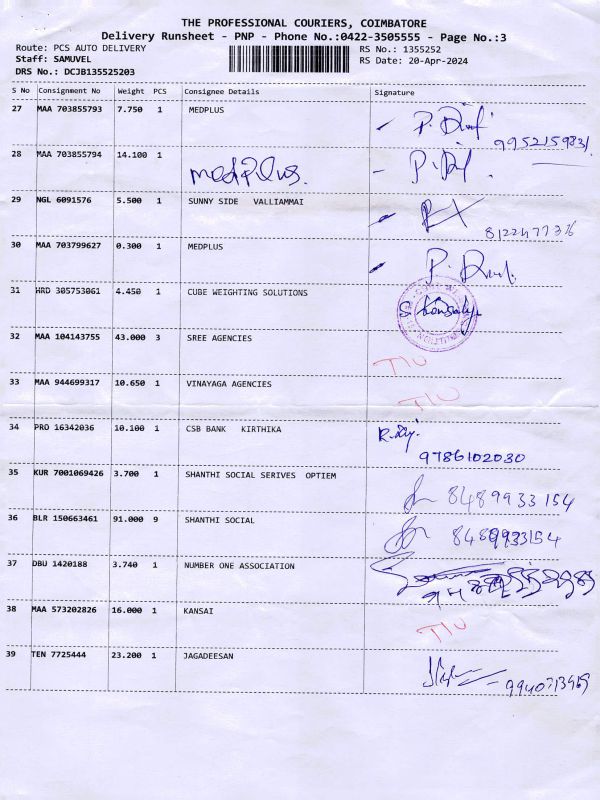 THE PROFESSIONAL COURIERS, COIMBATORE
Delivery Runsheet - PNP - Phone No.:0422-3505555 - Page No.:3
Route: PCS AUTO DELIVERY RS No.: 1355252
Staff: SAMUVEL RS Date: 20-Apr-2024
DRS No.: DCJB135525203
S No Consignment No Weight PCS Consignee Details Signature
27 MAA 703855793 7.750 1 MEDPLUS
28 MAA 703855794 14.100 1 medplus.
29 NGL 6091576 5.500 1 SUNNY SIDE VALLIAMMAI
30 MAA 703799627 0.300 1 MEDPLUS
31 HRD 305753061 4.450 1 CUBE WEIGHTING SOLUTIONS
32 MAA 104143755 43.000 3 SREE AGENCIES
33 MAA 944699317 10.650 1 VINAYAGA AGENCIES
34 PRO 16342036 10.100 1 CSB BANK KIRTHIKA
9786102030
35 KUR 7001069426 3.700 1 SHANTHI SOCIAL SERIVES OPTIEM 8489933154
36 BLR 150663461 91.000 9 SHANTHI SOCIAL 8489933154
37 DBU 1420188 3.740 1 NUMBER ONE ASSOCIATION
38 MAA 573202826 16.000 1 KANSAI
39 TEN 7725444 23.200 1 JAGADEESAN